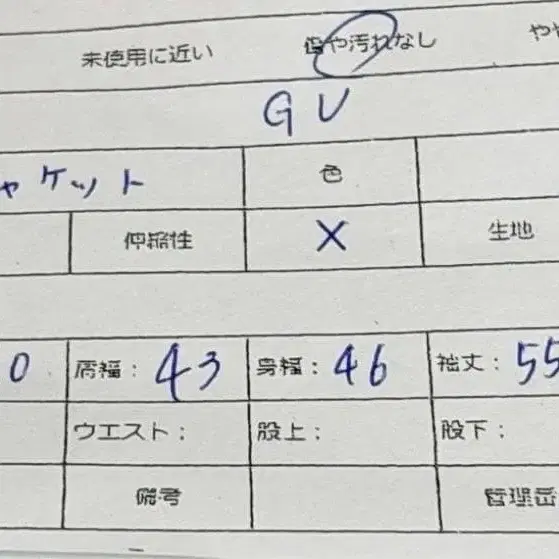 未使用に近い 傷や汚れなし やや
GU
ャケット 色
伸縮性 X 生地
0 肩幅: 43 身幅: 46 袖丈: 55
ウエスト: 股上: 股下:
備考 管理